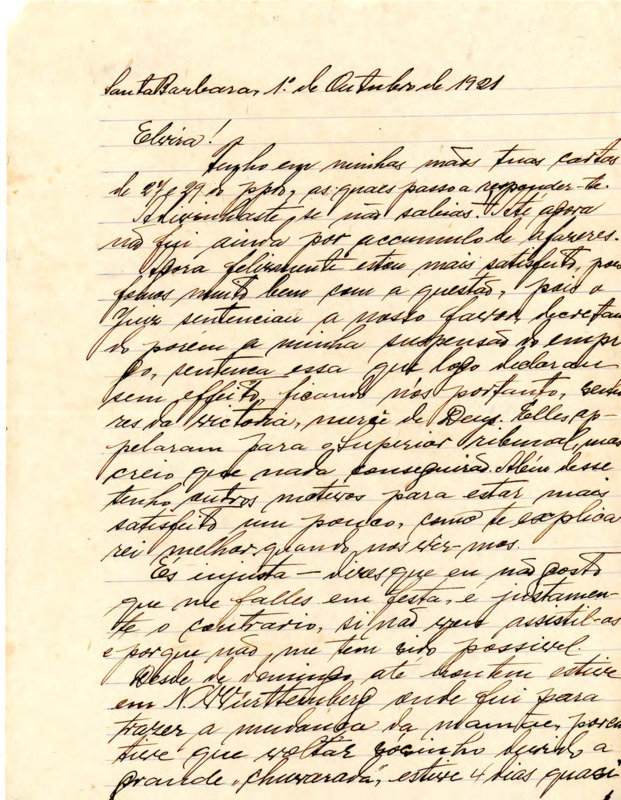 Santa Barbara, 1º de Outubro de 1921
Elvira!
Tenho em minhas mãos tuas cartas
de 27 e 29 do ppdo, as quaes passo a responder-te.
Adivinhaste, se não sabias. Até agora
não fui ainda por accumulo de afazeres.
Agora felizmente estou mais satisfeito, pois
fomos muito bem com a questão, pois o
Juiz sentenciou a nosso favor, decretan
do porem a minha suspensão do empre
go, sentença essa que logo declarou
sem effeito, ficando nós portanto, senho
res da victoria, mercê de Deus. Elles ap-
pelaram para o Superior Tribunal, mas
creio que nada conseguirão. Além desse
tenho outros motivos para estar mais
satisfeito um pouco, como te explica
rei melhor quando nos ver-mos.
És injusta — dizes que eu não gosto
que me falles em festa, e justamen-
te o contrario, si não vou assistil-as
é porque não me tem sido possivel.
Desde de domingo até hontem estive
em N. Württemberg onde fui para
trazer a mudança da mamãe, porem
tive que voltar sosinho devido a
grande "chuvarada", estive 4 dias quasi